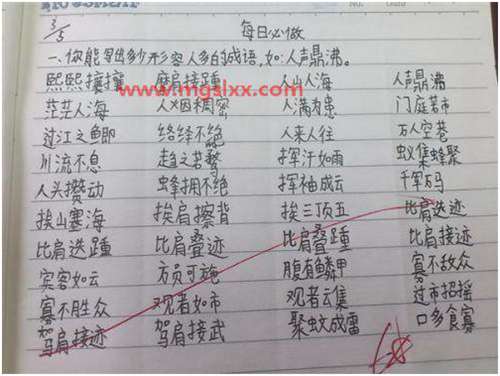 3/5
每日必做
一、你能写出多少形容人多的成语,如:人声鼎沸。
熙熙攘攘 摩肩接踵 人山人海 人声鼎沸
www.mgslxx.com
茫茫人海 人烟稠密 人满为患 门庭若市
过江之鲫 络绎不绝 人来人往 万人空巷
川流不息 趋之若鹜 挥汗如雨 蚁集蜂聚
人头攒动 蜂拥不绝 挥袖成云 千军万马
挨山塞海 挨肩擦背 挨三顶五 比肩迭迹
比肩迭踵 比肩叠迹 比肩叠踵 比肩接迹
宾客如云 方员可施 腹有鳞甲 寡不敌众
寡不胜众 观者如市 观者云集 过市招摇
驾肩接迹 驾肩接武 聚蚊成雷 口多食寡